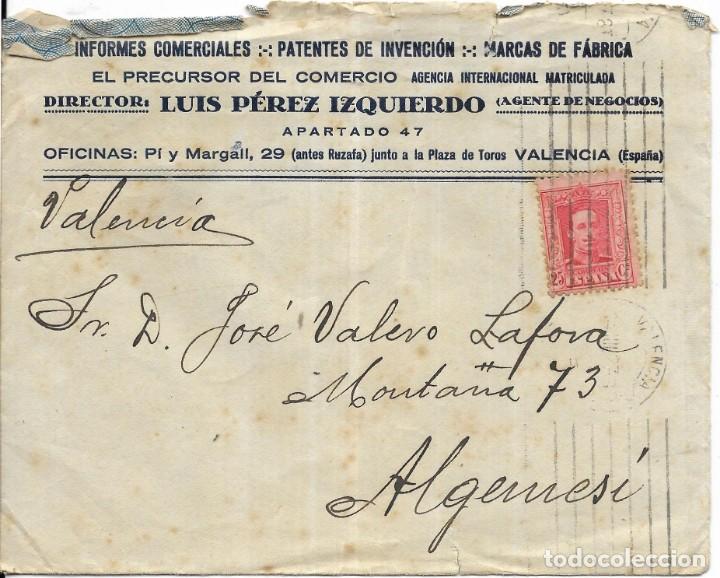 INFORMES COMERCIALES :-: PATENTES DE INVENCIÓN :-: MARCAS DE FÁBRICA
EL PRECURSOR DEL COMERCIO AGENCIA INTERNACIONAL MATRICULADA
DIRECTOR: LUIS PÉREZ IZQUIERDO (AGENTE DE NEGOCIOS)
APARTADO 47
OFICINAS: Pí y Margall, 29 (antes Ruzafa) junto a la Plaza de Toros VALENCIA (España)
Valencia
25 ESPAÑA
Sr. D. José Valero Lafora
VALENCIA
Montaña 73
Algemesí
todocoleccion